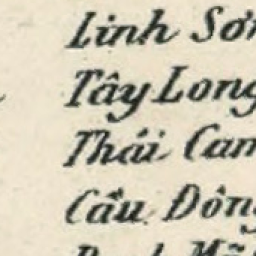 Linh Sơn
Tây Long
Thái Cam
Cầu Đông